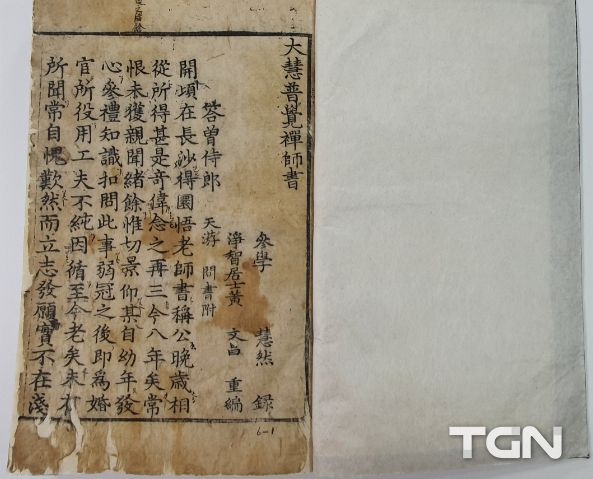 大慧普覺禪師書
參學 慧然 錄
淨智居士黃 文昌 重編
答曾侍郎 天游 問書附
開頃在長沙得圜悟老師書稱公晚歲相
從所得甚是奇偉念之再三今八年矣常
恨未獲親聞緒餘惟切景仰某自幼年發
心參禮知識扣問此事弱冠之後即為婚
宦所役用工夫不純因循至今老矣未有
所聞常自愧歎然而立志發願實不在淺
6-1
TGN